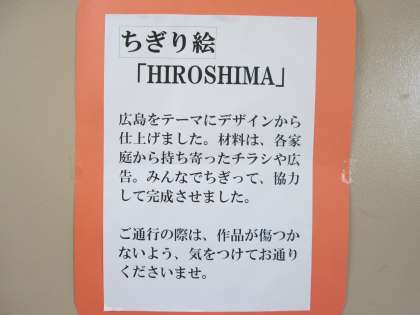 ちぎり絵
「HIROSHIMA」
広島をテーマにデザインから
仕上げました。材料は、各家
庭から持ち寄ったチラシや広
告。みんなでちぎって、協力
して完成させました。
ご通行の際は、作品が傷つか
ないよう、気をつけてお通り
くださいませ。